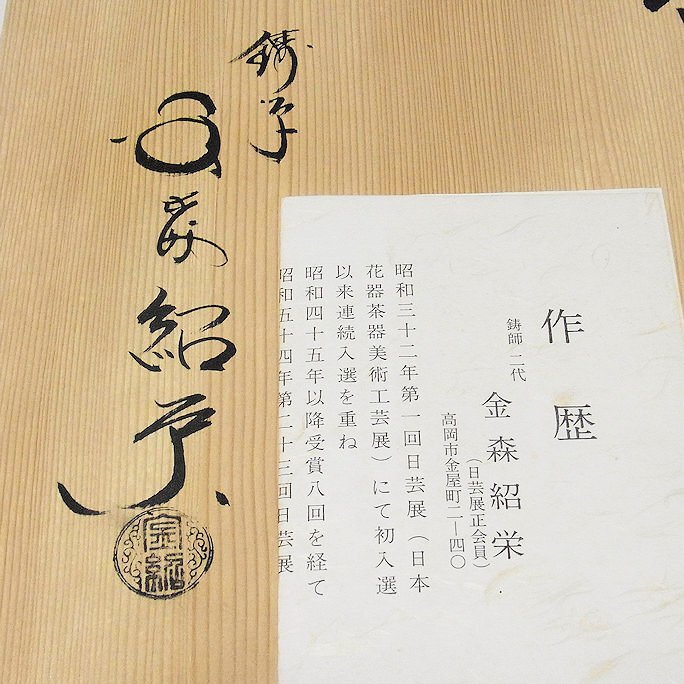 作歴
鋳師 二代
金森紹栄
(日芸展正会員)
高岡市金屋町二―四〇
昭和三十二年第一回日芸展(日本
花器茶器美術工芸展)にて初入選
以来連続入選を重ね
昭和四十五年以降受賞八回を経て
昭和五十四年第二十三回日芸展
鋳師
紹栄